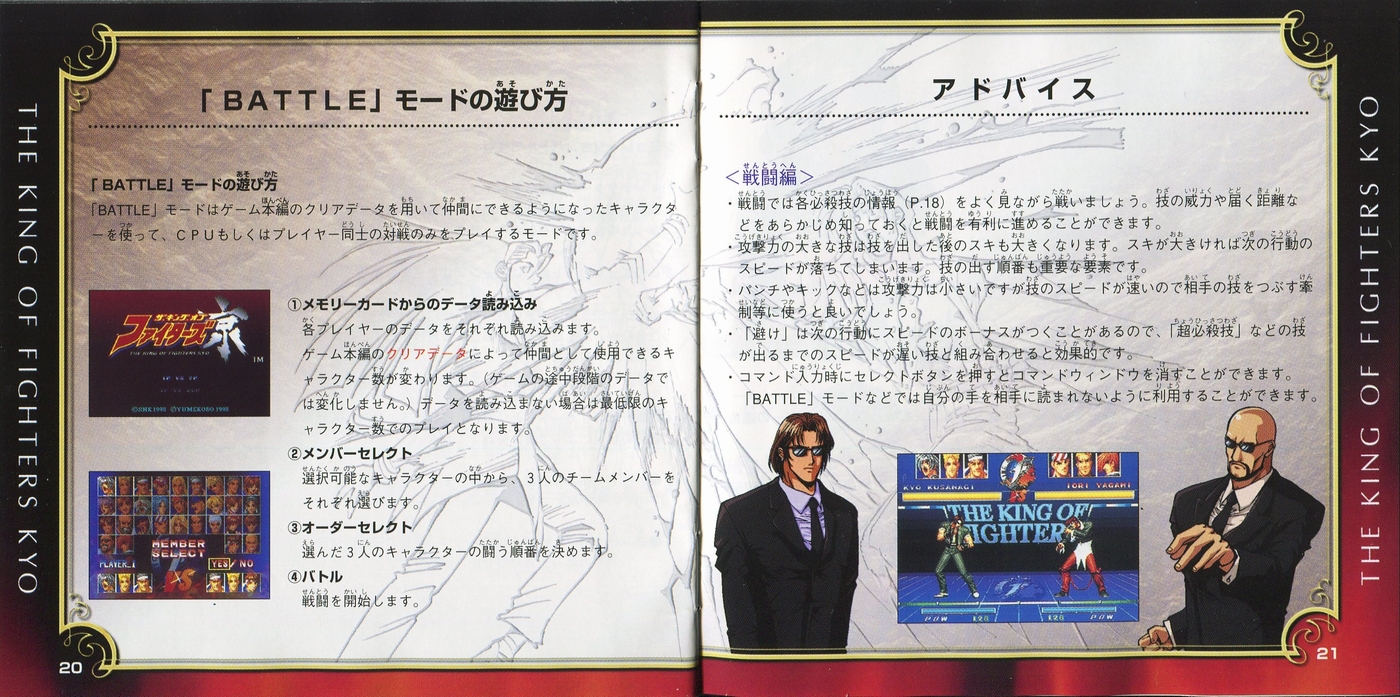 THE KING OF FIGHTERS KYO
「BATTLE」モードの遊び方
「BATTLE」モードの遊び方
「BATTLE」モードはゲーム本編のクリアデータを用いて仲間にできるようになったキャラクタ
ーを使って、ＣＰＵもしくはプレイヤー同士の対戦のみをプレイするモードです。
ザ・キング・オブ
ファイターズ京
THE KING OF FIGHTERS KYO
TM
©SNK1998 ©YUMEKOBO 1998
①メモリーカードからのデータ読み込み
各プレイヤーのデータをそれぞれ読み込みます。
ゲーム本編のクリアデータによって仲間として使用できるキ
ャラクター数が変わります。（ゲームの途中段階のデータで
は変化しません。）データを読み込まない場合は最低限のキ
ャラクター数でのプレイとなります。
②メンバーセレクト
選択可能なキャラクターの中から、３人のチームメンバーを
それぞれ選びます。
③オーダーセレクト
選んだ３人のキャラクターの闘う順番を決めます。
④バトル
戦闘を開始します。
MEMBER
SELECT
PLAYER_1
YES/ NO
VS
20
アドバイス
＜戦闘編＞
・戦闘では各必殺技の情報（P.18）をよく見ながら戦いましょう。技の威力や届く距離な
どをあらかじめ知っておくと戦闘を有利に進めることができます。
・攻撃力の大きな技は技を出した後のスキも大きくなります。スキが大きければ次の行動の
スピードが落ちてしまいます。技の出す順番も重要な要素です。
・パンチやキックなどは攻撃力は小さいですが技のスピードが速いので相手の技をつぶす牽
制等に使うと良いでしょう。
・「避け」は次の行動にスピードのボーナスがつくことがあるので、「超必殺技」などの技
が出るまでのスピードが遅い技と組み合わせると効果的です。
・コマンド入力時にセレクトボタンを押すとコマンドウィンドウを消すことができます。
「BATTLE」モードなどでは自分の手を相手に読まれないように利用することができます。
KYO KUSANAGI
IORI YAGAMI
THE KING OF
FIGHTER
POW
128
128
POW
THE KING OF FIGHTERS KYO
21